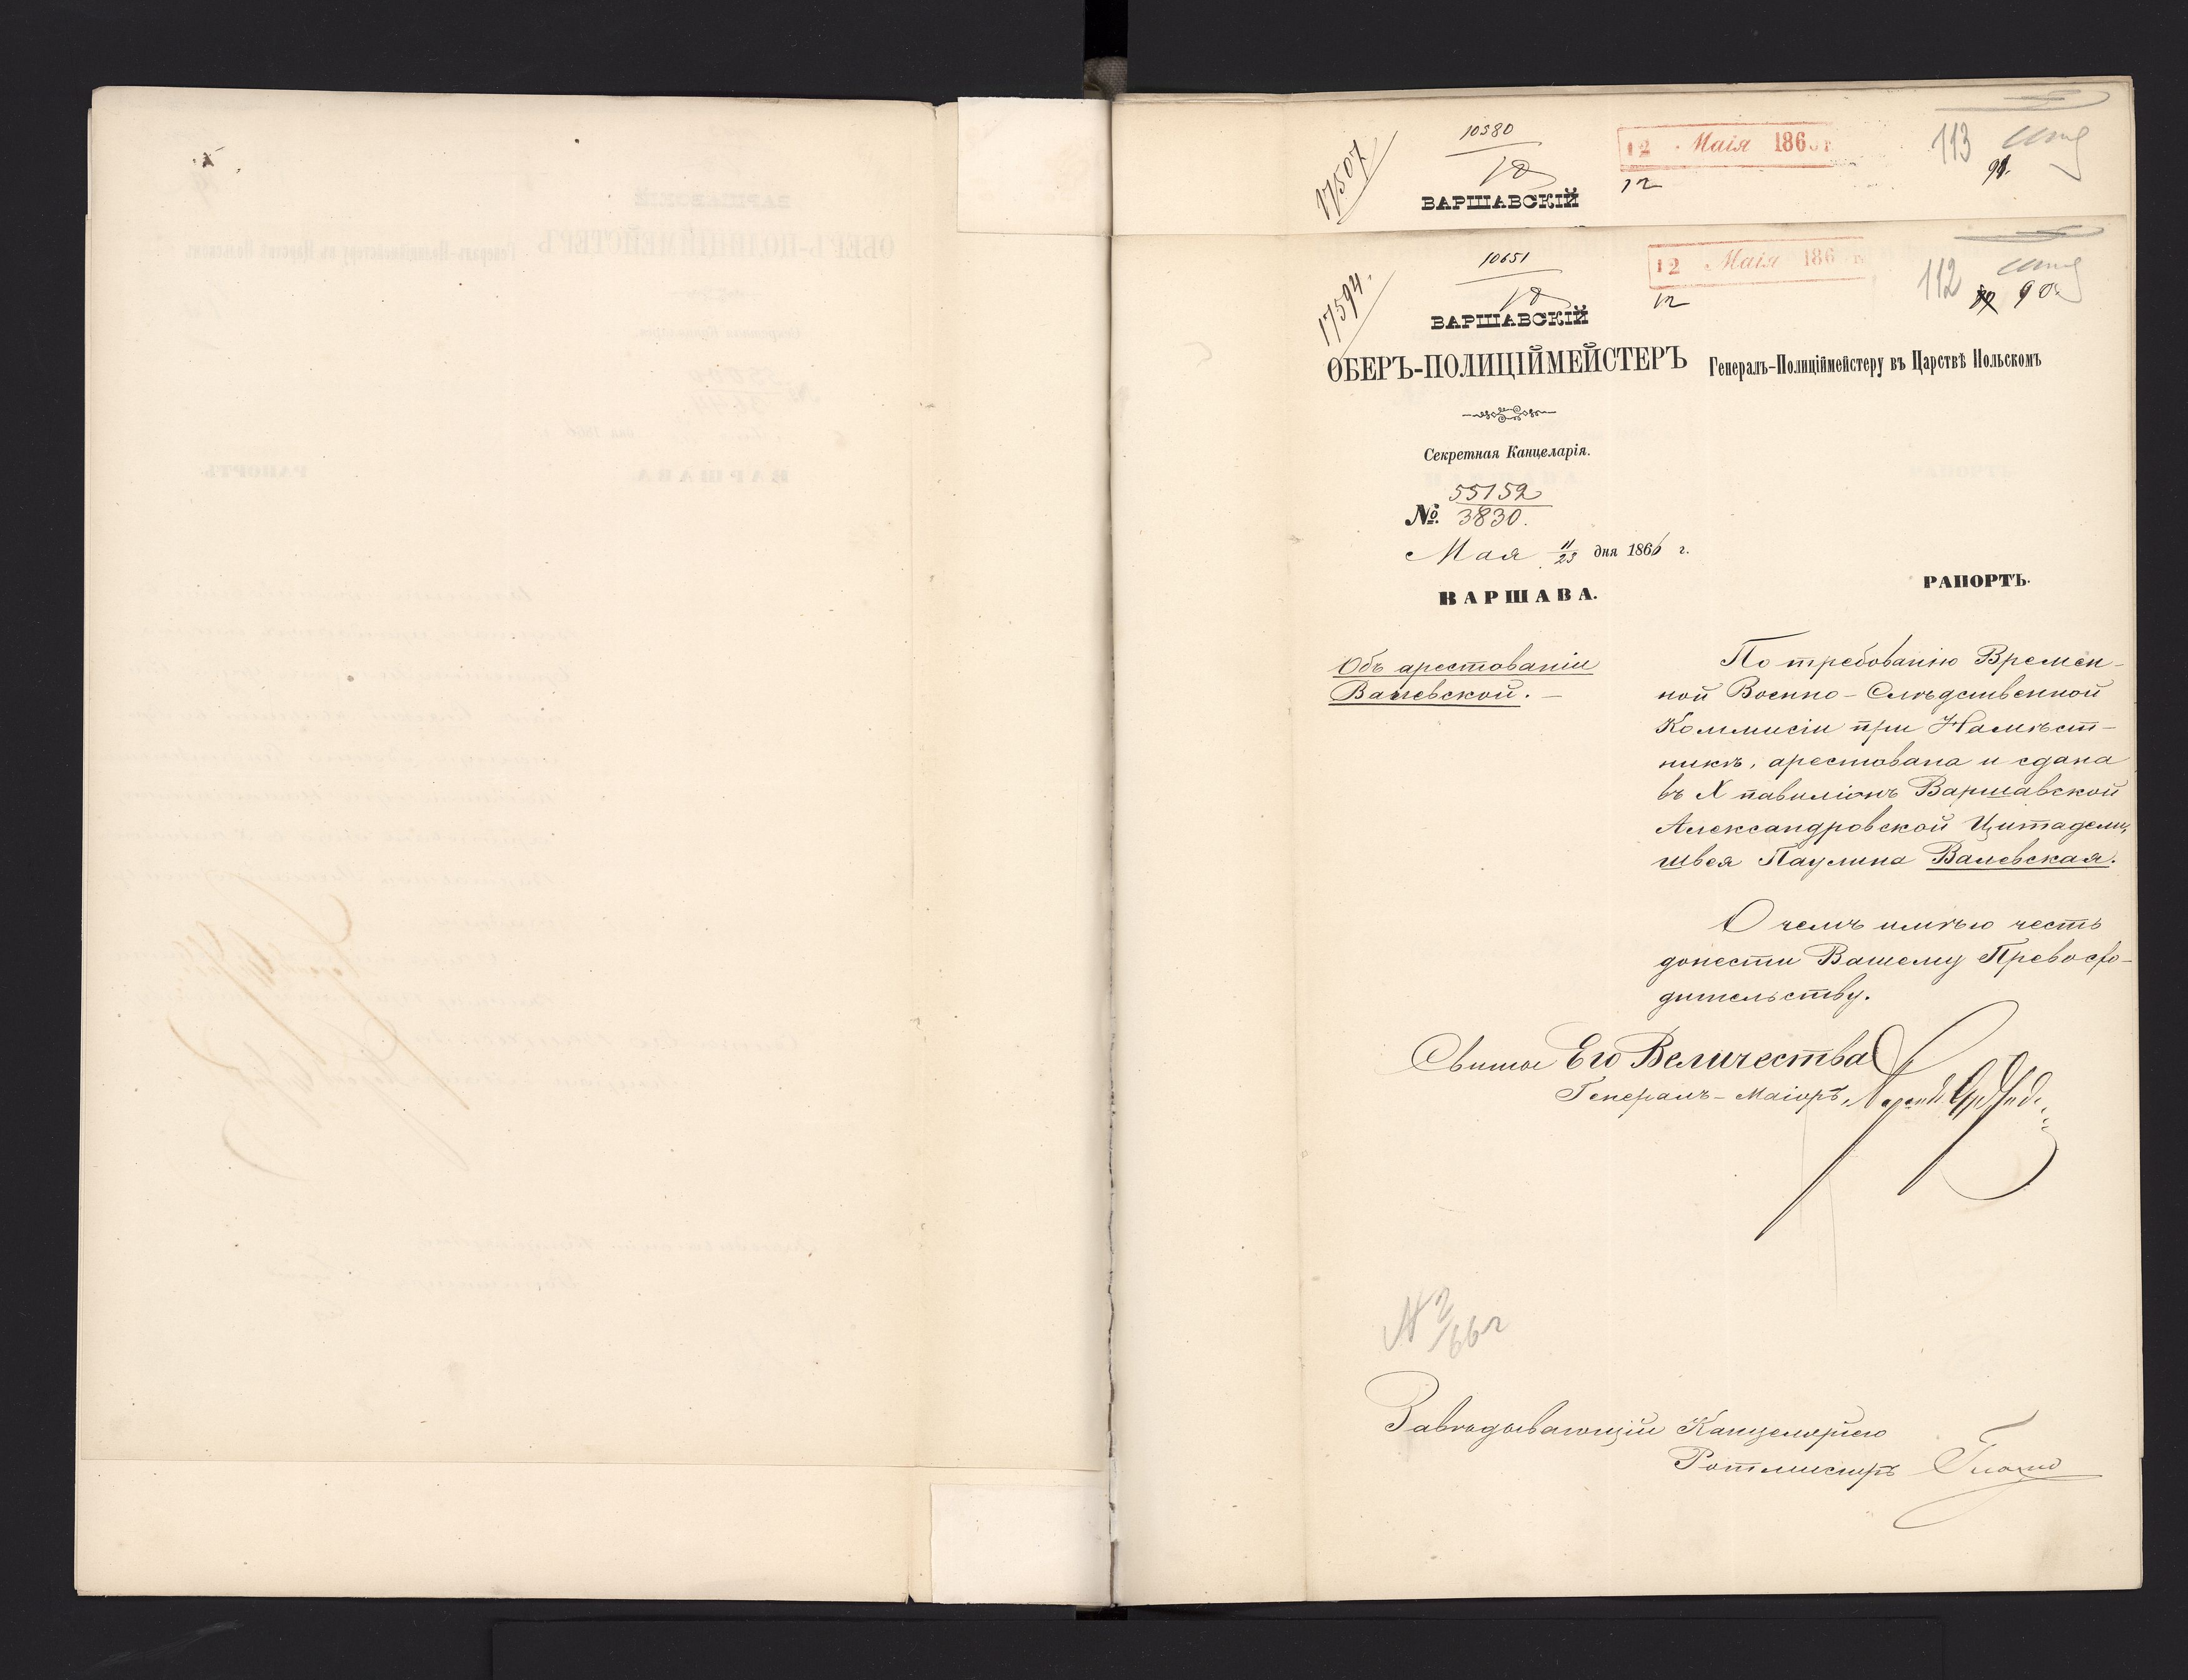 17507
10380
12 Маія 186
12
113
91.
ВАРШАВСКІЙ
17594.
10651
12 Маія 186
12
112
90.
ВАРШАВСКІЙ
ОБЕРЪ-ПОЛИЦІЙМЕЙСТЕРЪ
Генералъ-Полиціймейстеру въ Царствѣ Польскомъ
Секретная Канцеларія.
№ 55152
3830.
Мая 11/23 дня 1866 г.
ВАРШАВА.
РАПОРТЪ.
Объ арестованіи
Валевской. —
По требованію Времен-
ной Военно-Слѣдственной
Коммисіи при Намѣст-
никѣ, арестована и сдана
въ X павиліонъ Варшавской
Александровской Цитадели,
швея Паулина Валевская.
О чемъ имѣю честь
донести Вашему Превосхо-
дительству.
Свиты Его Величества
Генералъ-Маіоръ,
№ 2/66 г
Завѣдывающій Канцеляріею
Ротмистръ